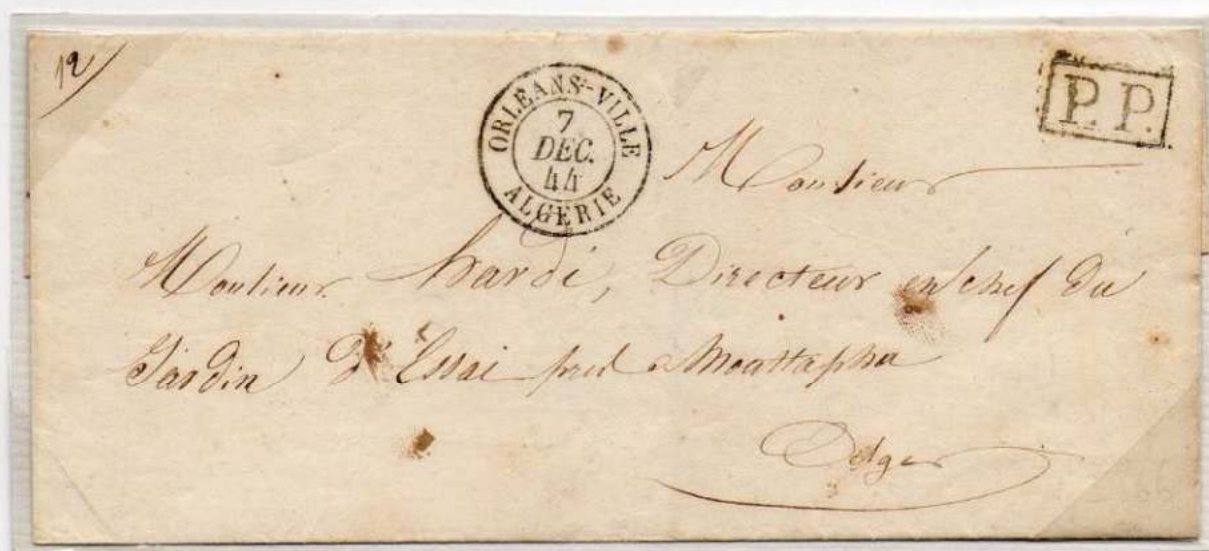 12
ORLÉANS-VILLE
7
DEC.
44
ALGÉRIE
P.P.
Monsieur
Monsieur hardi, Directeur en chef du
Jardin D'Essai près Moustapha
Alger